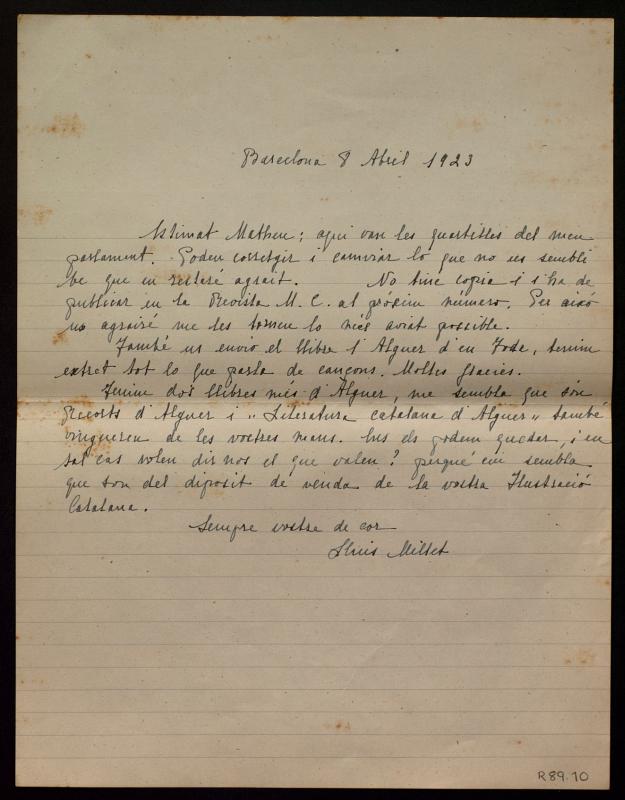 Barcelona 8 Abril 1923
Estimat Matheu; aqui van les quartilles del meu
parlament. Podeu corretgir i camviar lo que no us sembli
be que us restaré agrait. No tinc copia i s'ha de
publicar en la Revista M. C. al próxim número. Per això
us agrairé me les torneu lo més aviat possible.
També us envio el llibre l'Alguer d'en Toda, tenim
extret tot lo que parla de cançons. Moltes gracies.
Tenim dos llibres més d'Alguer, me sembla que són
Records d'Alguer i "Literatura catalana d'Alguer" també
vingueren de les vostres mans. Ens els podem quedar, i en
tal cas volen dir nos el que valen? perqué em sembla
que son del diposit de venda de la vostra Ilustració
Catalana.
Sempre vostre de cor
Lluis Millet
R 89.10